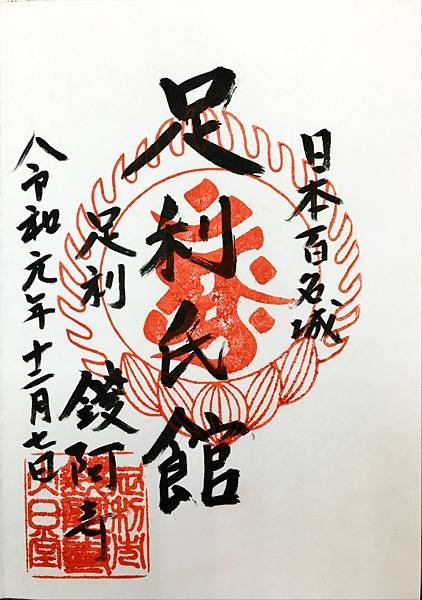 日本百名城
足利氏館
足利
鑁阿寺
令和元年十二月七日
大日堂